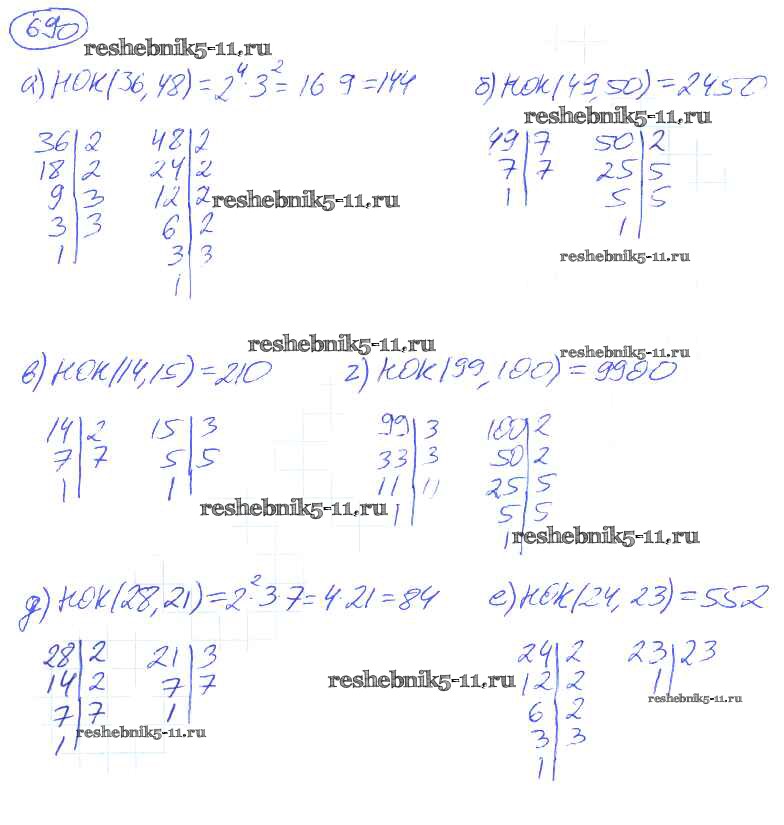 690
reshebnik5-11.ru
а) НОК(36,48) = 2⁴·3² = 16 9 = 144
36|2
18|2
9|3
3|3
1|
48|2
24|2
12|2
6|2
3|3
1|
reshebnik5-11.ru
б) НОК(49,50) = 2450
reshebnik5-11.ru
49|7
7|7
1|
50|2
25|5
5|5
1|
reshebnik5-11.ru
reshebnik5-11.ru
в) НОК(14,15) = 210
14|2
7|7
1|
15|3
5|5
1|
reshebnik5-11.ru
reshebnik5-11.ru
г) НОК(99,100) = 9900
99|3
33|3
11|11
1|
100|2
50|2
25|5
5|5
1|
reshebnik5-11.ru
д) НОК(28,21) = 2²·3·7 = 4·21 = 84
28|2
14|2
7|7
1|
21|3
7|7
1|
reshebnik5-11.ru
reshebnik5-11.ru
е) НОК(24,23) = 552
24|2
12|2
6|2
3|3
1|
23|23
1|
reshebnik5-11.ru